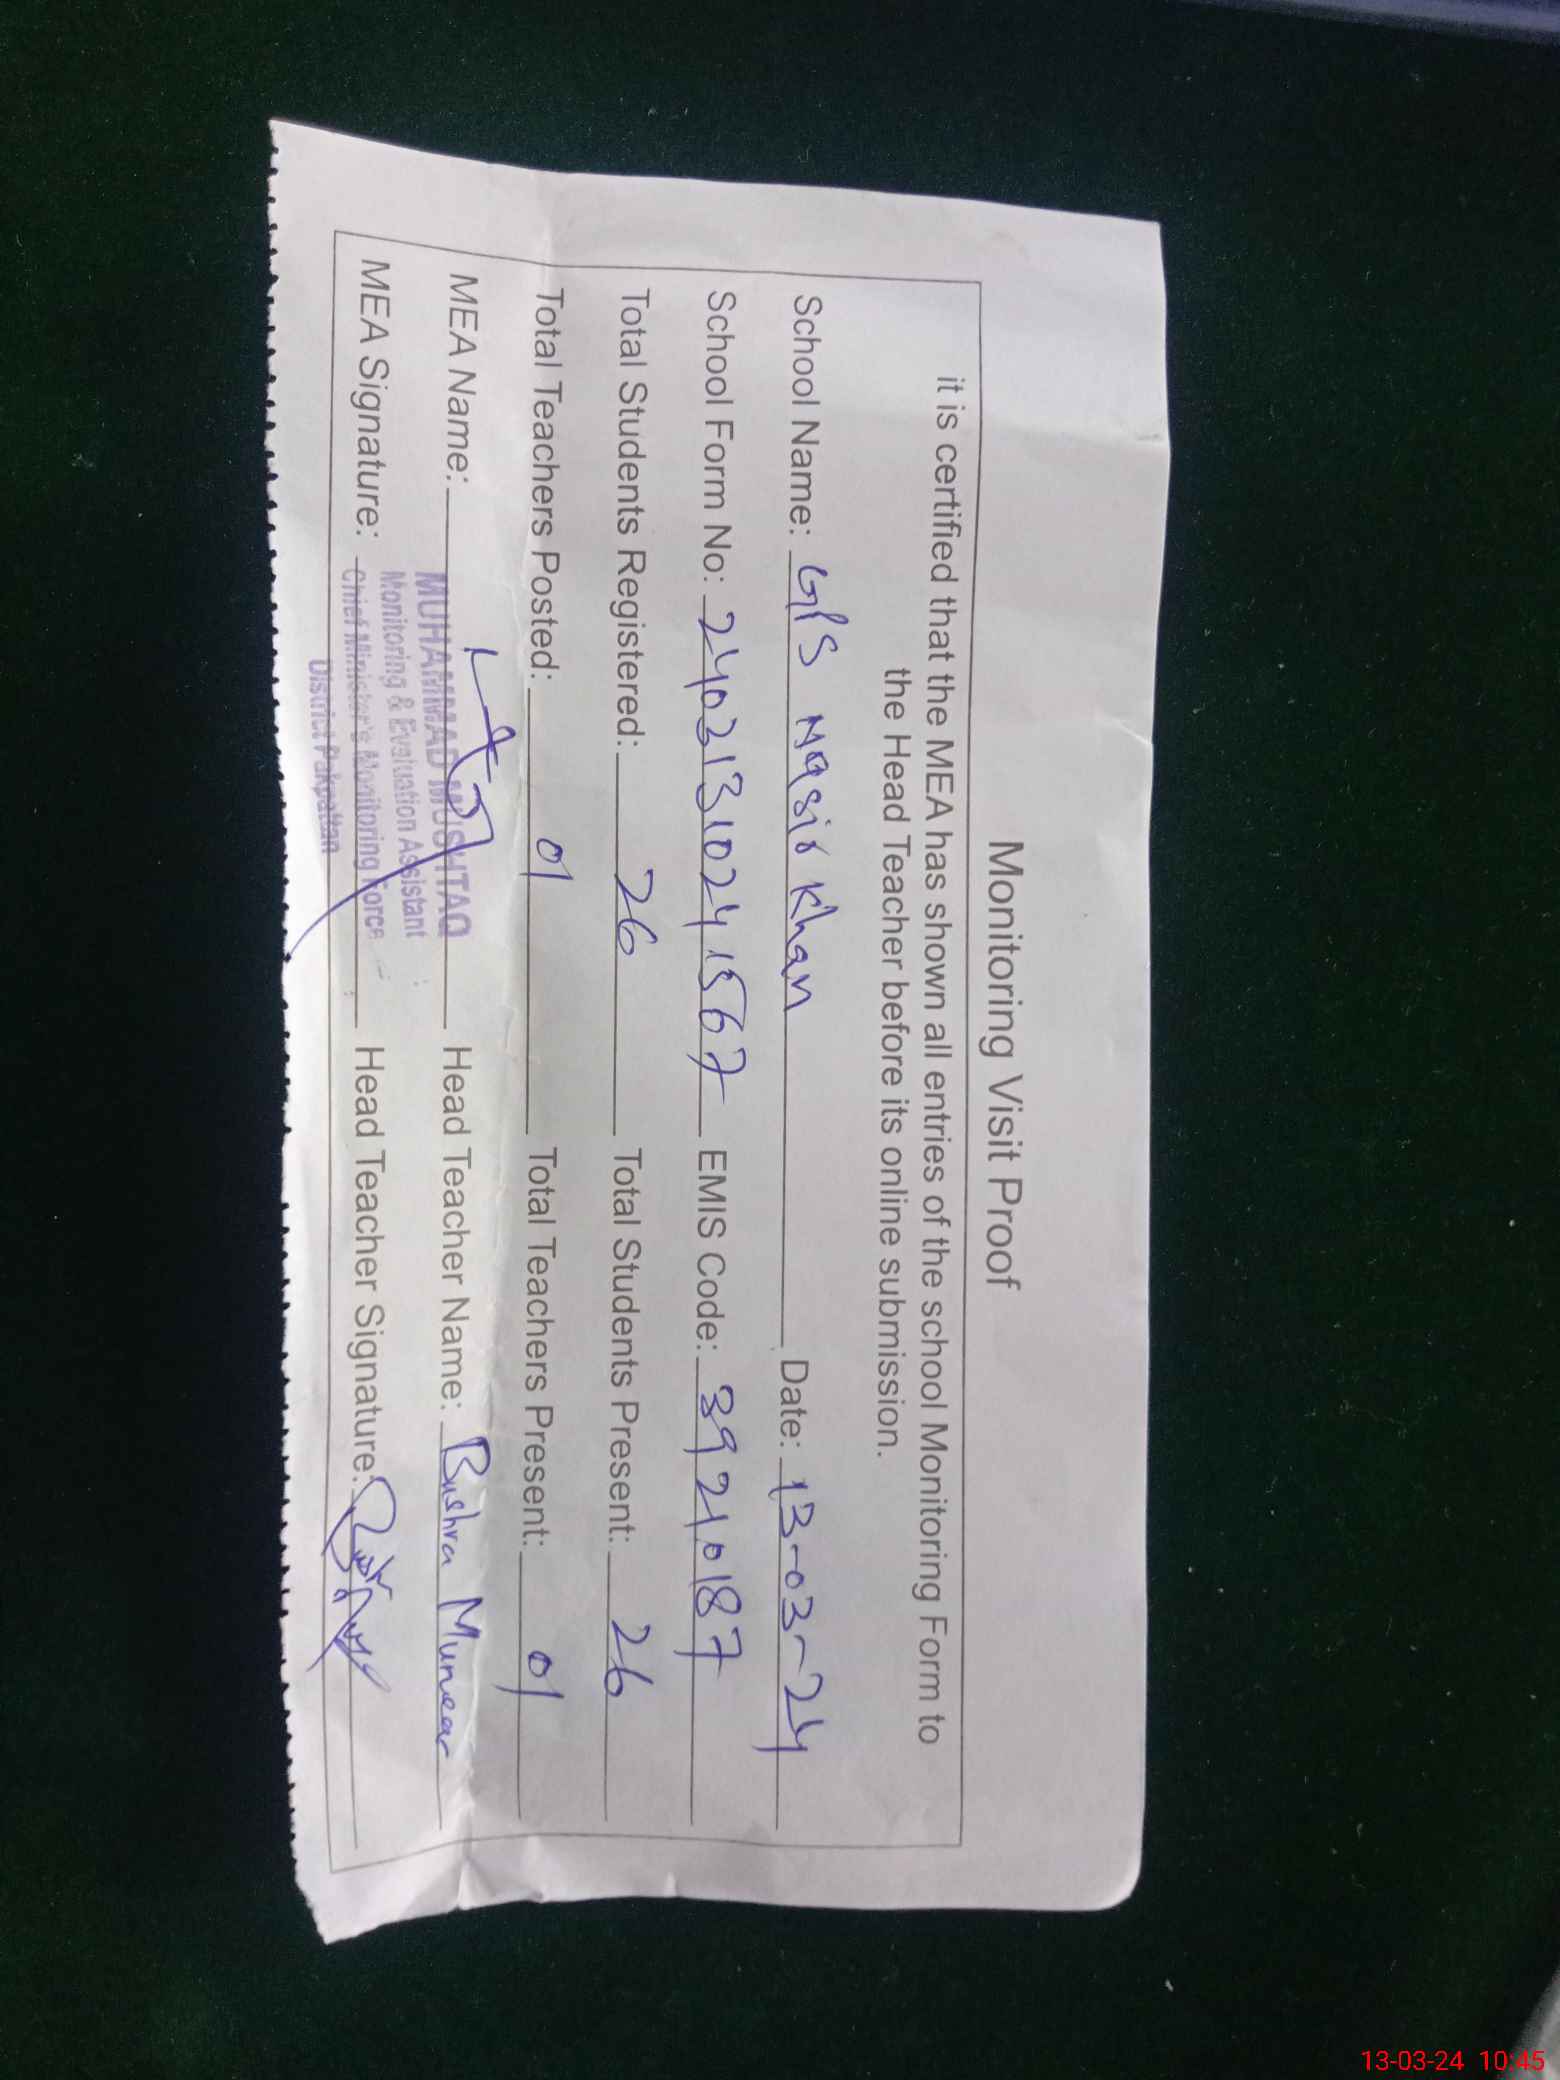 Monitoring Visit Proof
it is certified that the MEA has shown all entries of the school Monitoring Form to
the Head Teacher before its online submission.
School Name: GPS Nasir Khan Date: 13-03-24
School Form No: 24031310241567 EMIS Code: 39210187
Total Students Registered: 26 Total Students Present: 26
Total Teachers Posted: 01 Total Teachers Present: 01
MEA Name: MUHAMMAD MUSHTAQ Head Teacher Name: Bushra Muneer
Monitoring & Evaluation Assistant
MEA Signature: Chief Minister's Monitoring Force Head Teacher Signature:
District Pakpattan
13-03-24 10:45